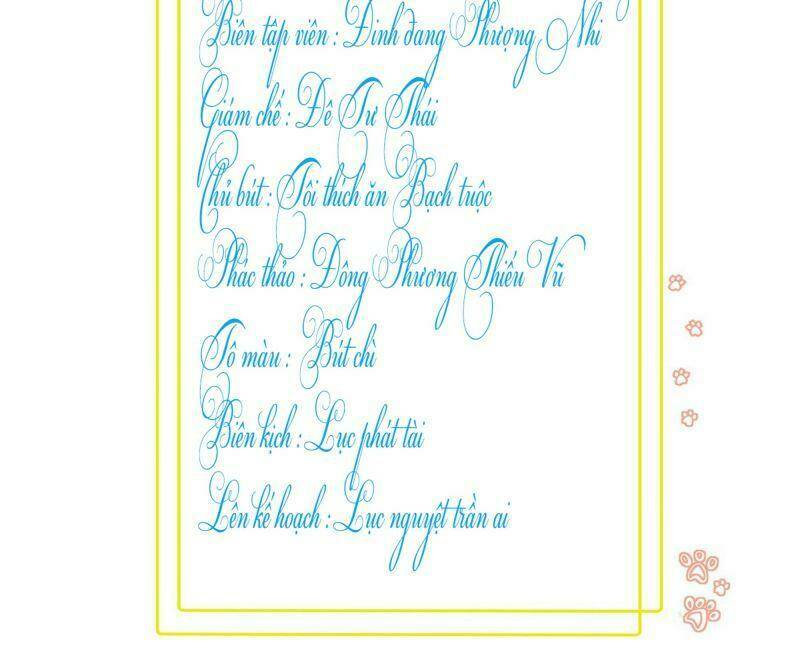 Biên tập viên : Đinh đang Phượng Nhi
Giám chế : Đê Tư Thái
Chủ bút : Tôi thích ăn Bạch tuộc
Phác thảo : Đông Phương Thiếu Vũ
Tô màu : Bút chì
Biên kịch : Lục phát tài
Lên kế hoạch : Lục nguyệt trần ai